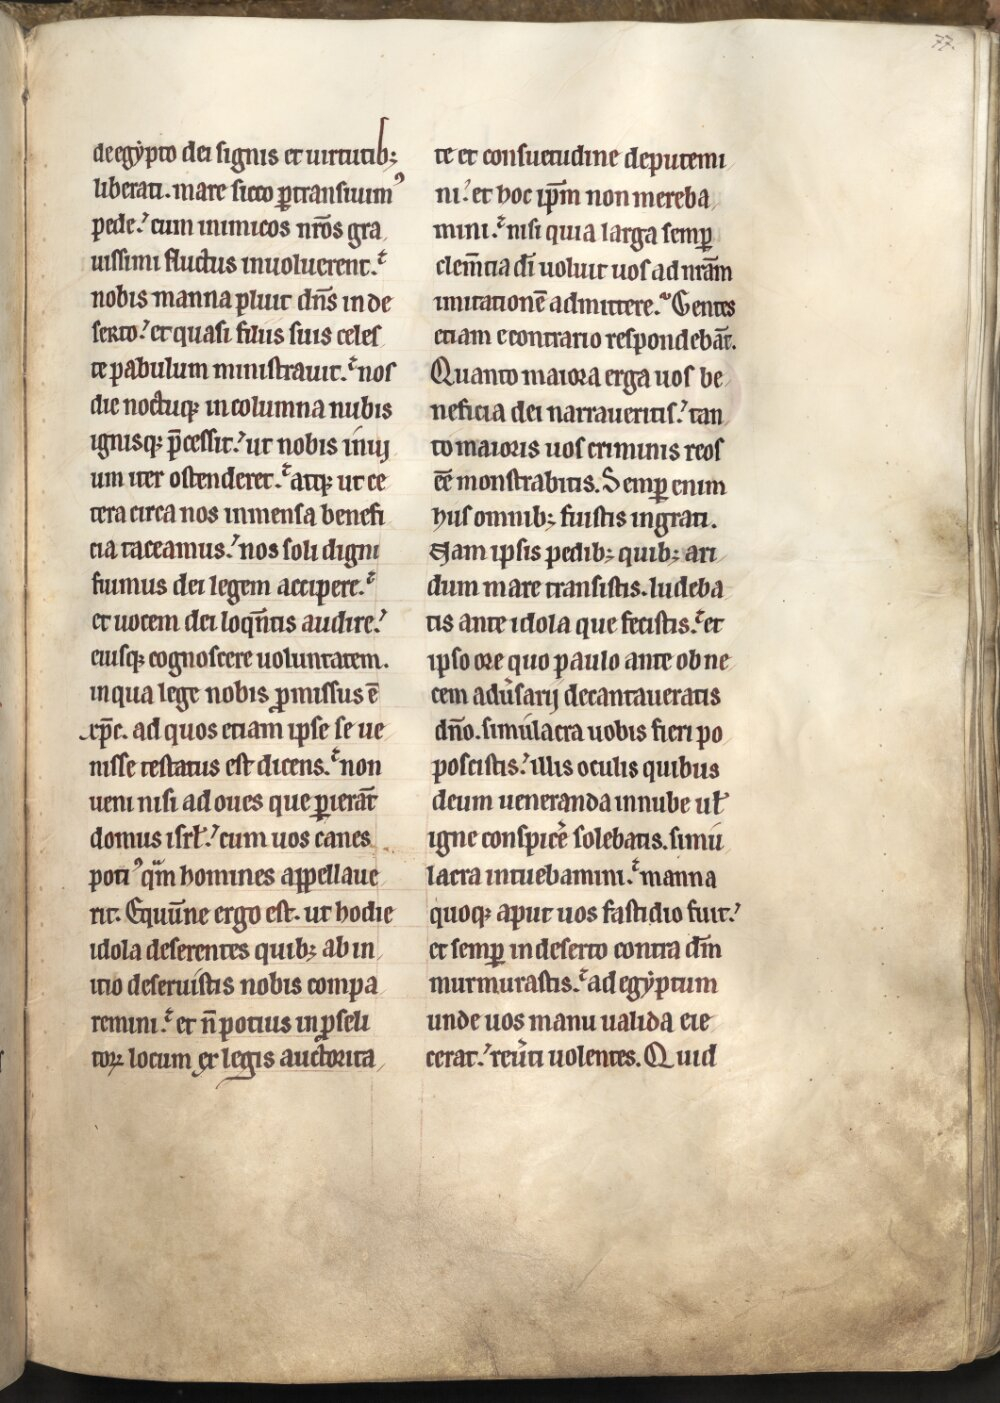 77.
de egẏpto dei signis et uirtutib;
liberati. mare sicco ꝑtransiuimꝰ
pede. cum inimicos nr̄os gra
uissimi fluctus inuoluerent.
nobis manna pluit dn̄s in de
serto. et quasi filiis suis celes
te pabulum ministrauit. nos
die noctuqꝫ in columna nubis
ignisqꝫ p̄cessit. ut nobis inuij
um iter ostenderet. atqꝫ ut ce
tera circa nos inmensa benefi
cia taceamus. nos soli digni
fuimus dei legem accipere.
et uocem dei loqn̄tis audire.
eiusqꝫ cognoscere uoluntatem.
in qua lege nobis ꝓmissus ē
xp̄c. ad quos etiam ipse se ue
nisse testatus est dicens. non
ueni nisi ad oues que ꝑierāt
domus isrł. cum uos canes
potiꝰ qm̄ homines appellaue
rit. Equūne ergo est. ut hodie
idola deserentes quib; ab in
itio deseruistis nobis compa
remini. et n̄ potius in ꝓseli
toꝝ locum ex legis auctorita
te et consuetudine deputemi
ni. et hoc ip̄m non mereba
mini. nisi quia larga semꝑ
clem̄tia dī uoluit uos ad nrām
imitationē admittere. Gentes
etiam e contrario respondebāt.
Quanto maiora erga uos be
neficia dei narraueritis. tan
to maioris uos criminis reos
ēē monstrabitis. Semꝑ enim
hiis omnib; fuistis ingrati.
Nam ipsis pedib; quib; ari
dum mare transistis. ludeba
tis ante idola que fecistis. et
ipso ore quo paulo ante ob ne
cem adu᷑sarij decantaueratis
dn̄o. simulacra uobis fieri po
poscistis. illis oculis quibus
deum ueneranda in nube ul̃
igne conspice᷑ solebatis. simu
lacra intuebamini. manna
quoqꝫ aput uos fastidio fuit.
et semꝑ in deserto contra dm̄
murmurastis. ad egẏptum
unde uos manu ualida eie
cerat. reu᷑ti uolentes. Quid